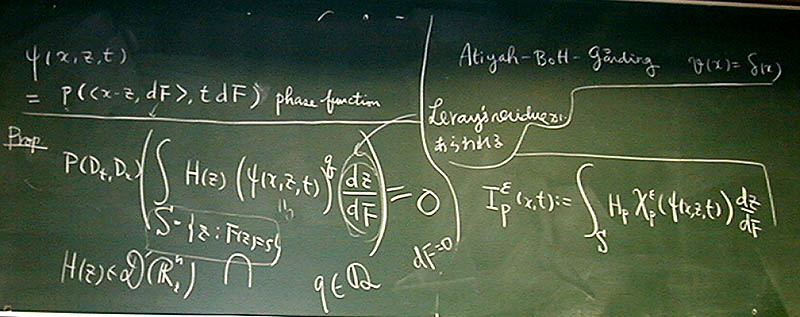 ψ(x, z, t)
= P(<x-z, dF>, t dF) phase function
Prop
P(D_t, D_x) ( ∫_S H(z) (ψ(x, z, t))^q dz/dF ) = 0
S = {z : F(z) = s}
H(z) ∈ D'(R^n_z)
q ∈ Q
dF=0
Atiyah-Bott-Gårding v(x) = δ(x)
Leray's residue
あらわれる
I_p^ε(x,t) := ∫_S H_p χ_p^ε(ψ(x,z,t)) dz/dF